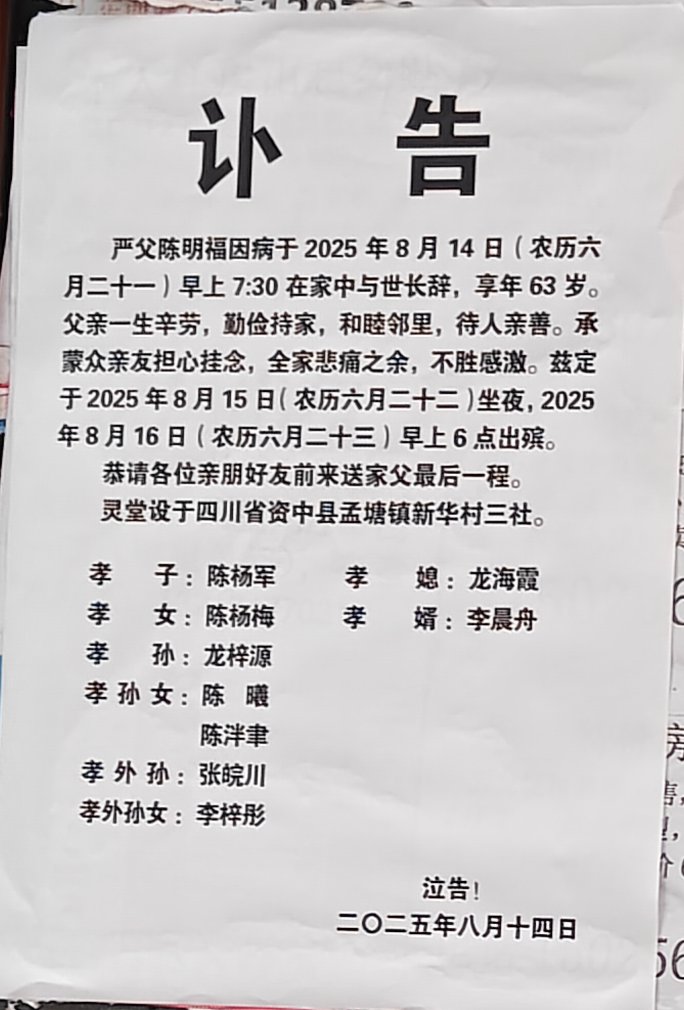 讣 告
严父陈明福因病于 2025 年 8 月 14 日（农历六
月二十一）早上 7:30 在家中与世长辞，享年 63 岁。
父亲一生辛劳，勤俭持家，和睦邻里，待人亲善。承
蒙众亲友担心挂念，全家悲痛之余，不胜感激。兹定
于 2025 年 8 月 15 日（农历六月二十二）坐夜，2025
年 8 月 16 日（农历六月二十三）早上 6 点出殡。
恭请各位亲朋好友前来送家父最后一程。
灵堂设于四川省资中县孟塘镇新华村三社。
孝 子：陈杨军 孝 媳：龙海霞
孝 女：陈杨梅 孝 婿：李晨舟
孝 孙：龙梓源
孝 孙 女：陈 曦
陈泮聿
孝 外 孙：张皖川
孝外孙女：李梓彤
泣告！
二〇二五年八月十四日